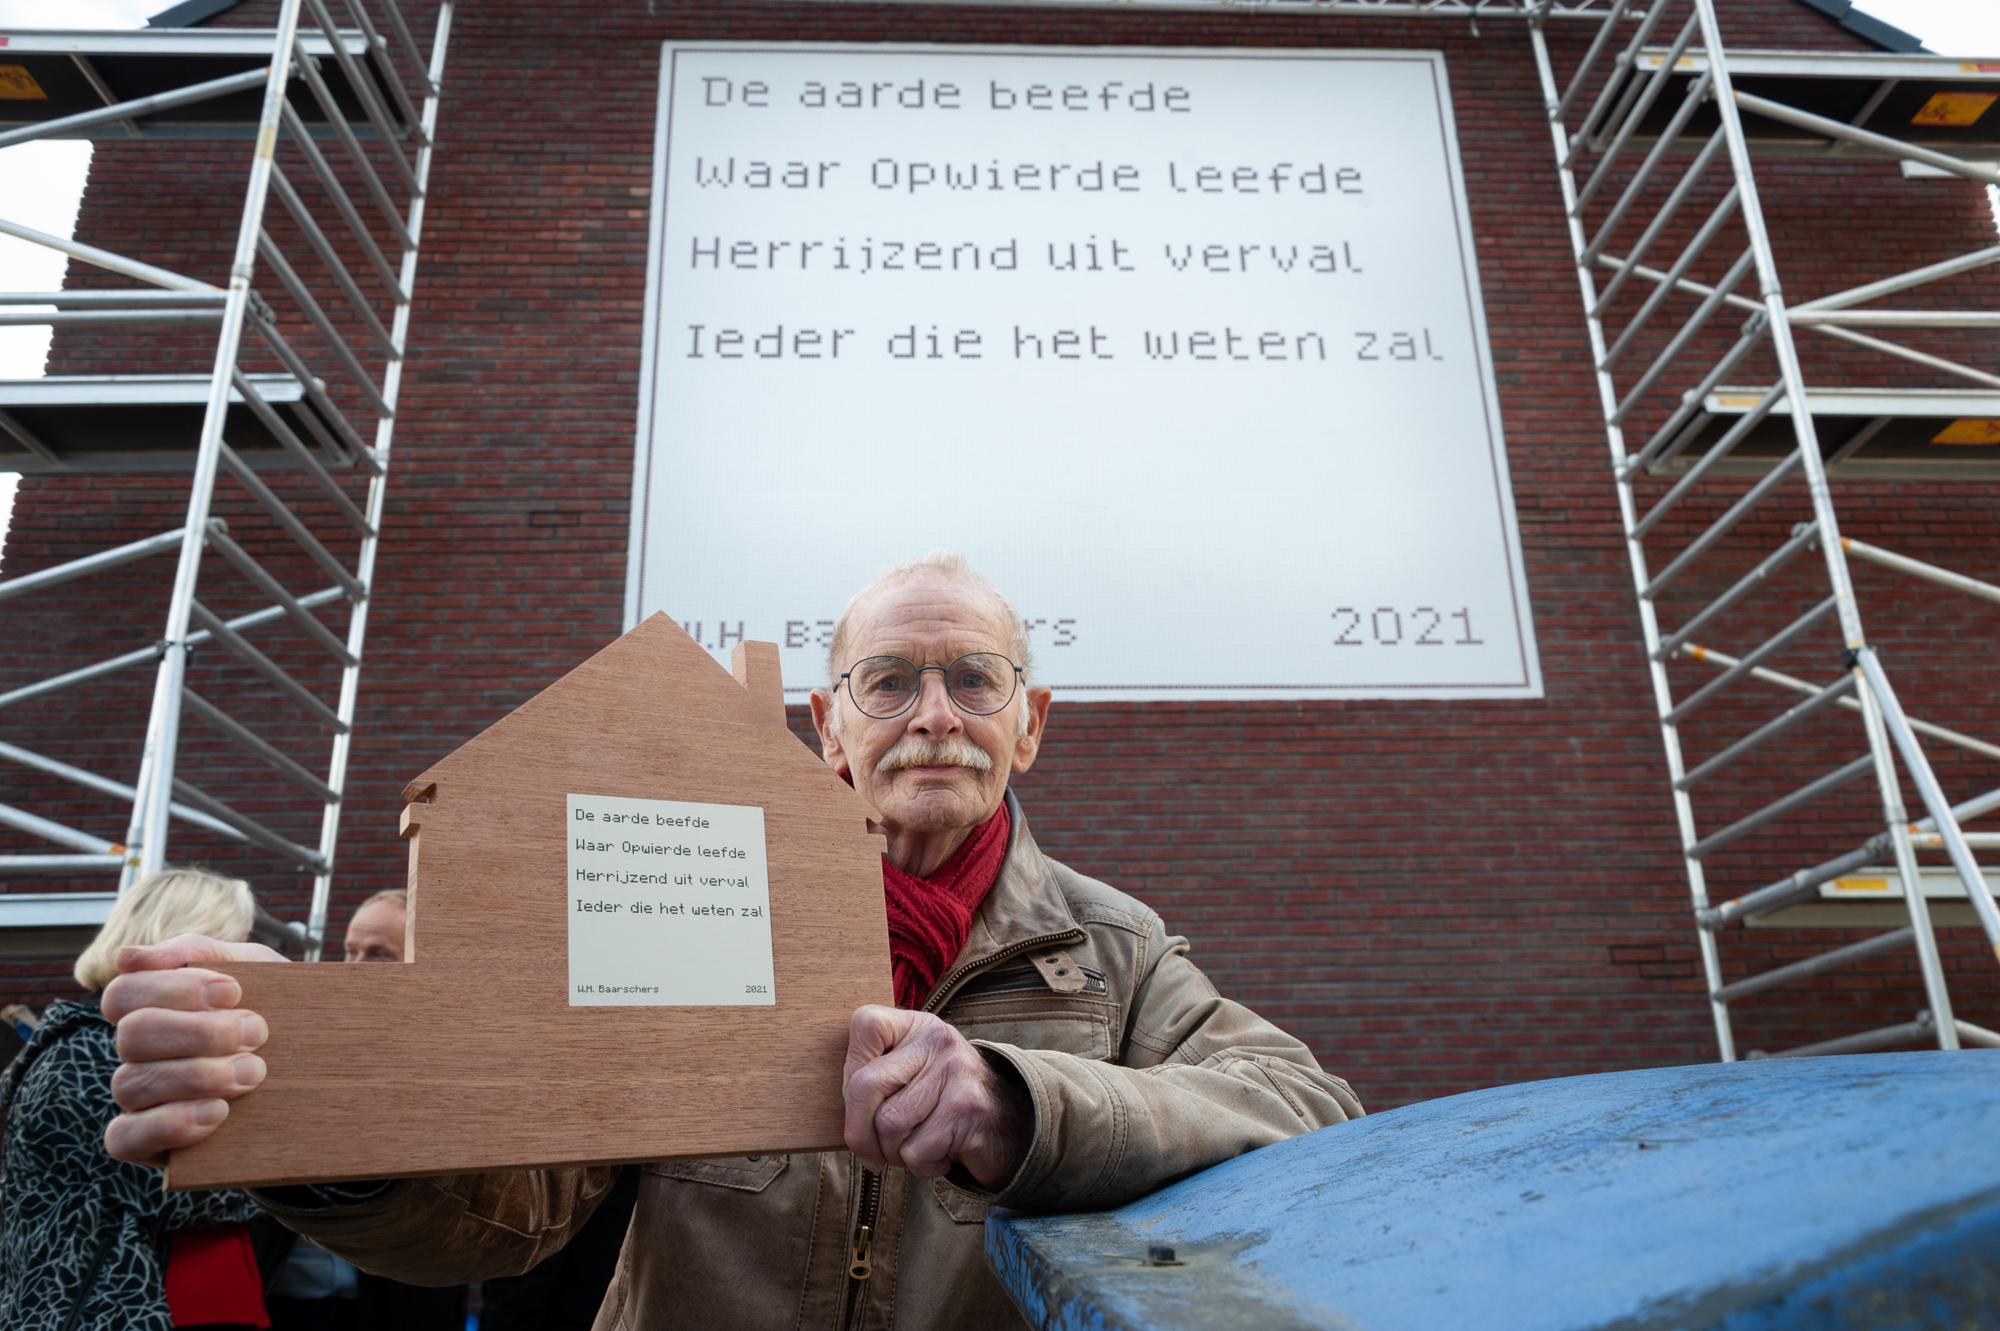 De aarde beefde
Waar Opwierde leefde
Herrijzend uit verval
Ieder die het weten zal
2021
De aarde beefde
Waar Opwierde leefde
Herrijzend uit verval
Ieder die het weten zal
W.H. Baarschers 2021